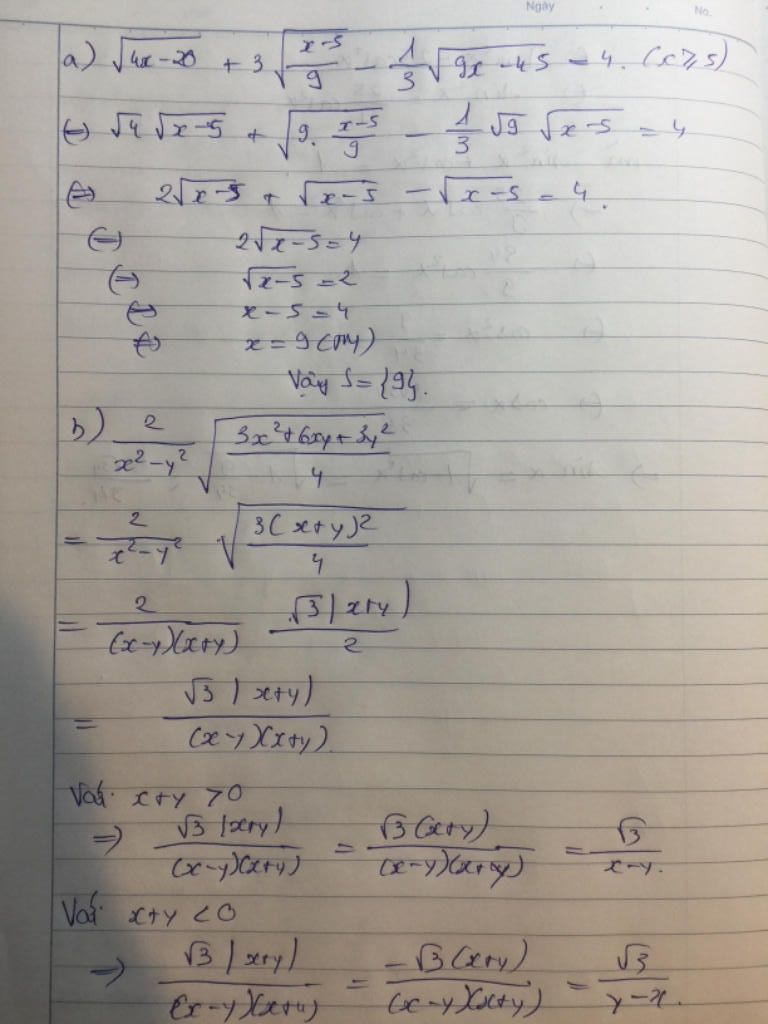 Ngày
No.
a) √(4x-20) + 3√((x-5)/9) - 1/3 √(9x-45) = 4. (x ≥ 5)
(=) √4 √(x-5) + √(9. (x-5)/9) - 1/3 √9 √(x-5) = 4
(=) 2√(x-5) + √(x-5) - √(x-5) = 4.
(=) 2√(x-5) = 4
(=) √(x-5) = 2
(=) x - 5 = 4
(=) x = 9 (TM)
Vậy S = {9}.
b) 2/(x²-y²) √((3x²+6xy+3y²)/4)
= 2/(x²-y²) √(3(x+y)²/4)
= 2/((x-y)(x+y)) . √3|x+y|/2
= √3|x+y|/((x-y)(x+y)).
Với x+y > 0
=> √3|x+y|/((x-y)(x+y)) = √3(x+y)/((x-y)(x+y)) = √3/(x-y).
Với x+y < 0
=> √3|x+y|/((x-y)(x+y)) = -√3(x+y)/((x-y)(x+y)) = √3/(y-x).